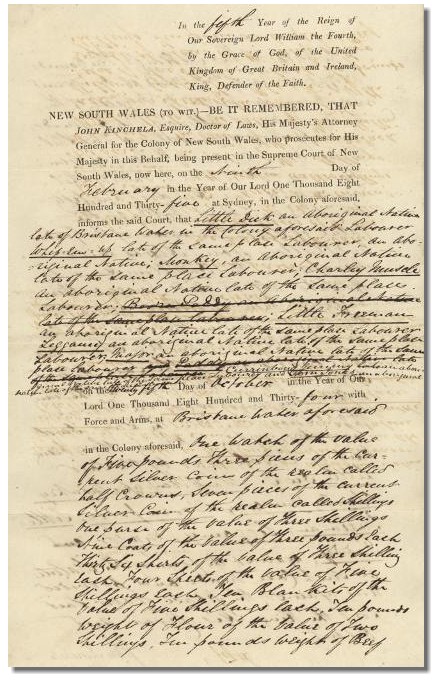 In the fifth Year of the Reign of
Our Sovereign Lord William the Fourth,
by the Grace of God, of the United
Kingdom of Great Britain and Ireland,
King, Defender of the Faith.
NEW SOUTH WALES (TO WIT.)—BE IT REMEMBERED, THAT
JOHN KINCHELA, Esquire, Doctor of Laws, His Majesty's Attorney
General for the Colony of New South Wales, who prosecutes for His
Majesty in this Behalf, being present in the Supreme Court of New
South Wales, now here, on the Ninth Day of
February in the Year of Our Lord One Thousand Eight
Hundred and Thirty-five at Sydney, in the Colony aforesaid,
informs the said Court, that Little Dick an aboriginal Native
late of Brisbane Water in the Colony aforesaid Labourer
late of the same place Labourer, an abo-
riginal Native; Monkey, an aboriginal Native
late of the same place Labourer, Charley Muscle
an aboriginal Native late of the same place
Labourer, an aboriginal Native
late of the same place Labourer; Little Freeman
an aboriginal Native late of the same place Labourer
Leggamy an aboriginal Native late of the same place
Labourer, Major an aboriginal Native late of the same
place Labourer
on the Day of October in the Year of Our
Lord One Thousand Eight Hundred and Thirty-four with
Force and Arms, at Brisbane Water aforesaid
in the Colony aforesaid, One Watch of the value
of Five pounds Three pieces of the cur-
rent Silver Coin of the realm called
half Crowns, Seven pieces of the current
Silver Coin of the realm called Shillings
One purse of the value of Three Shillings
Nine Coats of the value of Three pounds each
Thirty Shirts of the value of Three Shilling
each Four Sheets of the value of Five
Shillings each Ten Blankets of the
value of Five Shillings each, Ten pounds
weight of Flour of the value of Two
Shillings, Ten pounds weight of Beef